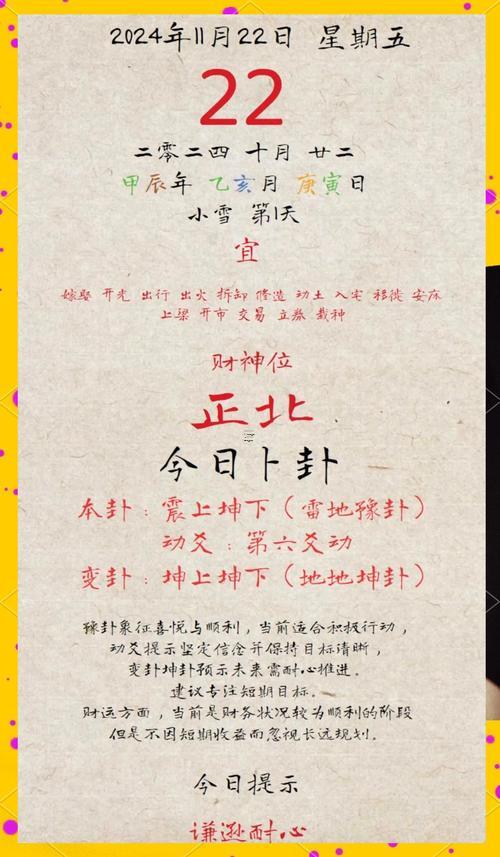 2024年11月22日 星期五
22
二零二四 十月 廿二
甲辰年 乙亥月 庚寅日
小雪 第1天
宜
嫁娶 开光 出行 出火 拆卸 修造 动土 入宅 移徙 安床
上梁 开市 交易 立券 栽种
财神位
正北
今日卜卦
本卦：震上坤下（雷地豫卦）
动爻：第六爻动
变卦：坤上坤下（地地坤卦）
豫卦象征喜悦与顺利，当前适合积极行动，
动爻提示坚定信念并保持目标清晰，
变卦坤卦预示未来需耐心推进。
建议专注短期目标。
财运方面，当前是财务状况较为顺利的阶段
但是不因短期收益而忽视长远规划。
今日提示
谦逊耐心